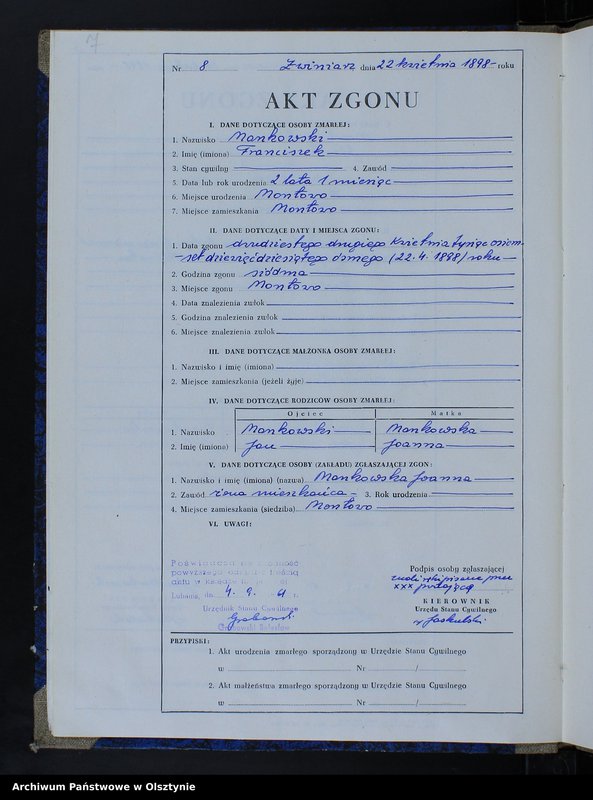 7
Nr 8 Zwiniarz dnia 22 kwietnia 1898 - roku
AKT ZGONU
I. DANE DOTYCZĄCE OSOBY ZMARŁEJ:
1. Nazwisko Mankowski
2. Imię (imiona) Franciszek
3. Stan cywilny 4. Zawód
5. Data lub rok urodzenia 2 lata 1 miesiąc
6. Miejsce urodzenia Montowo
7. Miejsce zamieszkania Montowo
II. DANE DOTYCZĄCE DATY I MIEJSCA ZGONU:
1. Data zgonu dwudziestego drugiego kwietnia tysiąc osiem-
-set dziewięćdziesiątego ósmego (22.4. 1898) roku
2. Godzina zgonu siódma
3. Miejsce zgonu Montowo
4. Data znalezienia zwłok
5. Godzina znalezienia zwłok
6. Miejsce znalezienia zwłok
III. DANE DOTYCZĄCE MAŁŻONKA OSOBY ZMARŁEJ:
1. Nazwisko i imię (imiona)
2. Miejsce zamieszkania (jeżeli żyje)
IV. DANE DOTYCZĄCE RODZICÓW OSOBY ZMARŁEJ:
Ojciec Matka
1. Nazwisko Mankowski Mankowska
2. Imię (imiona) Jan Joanna
V. DANE DOTYCZĄCE OSOBY (ZAKŁADU) ZGŁASZAJĄCEJ ZGON:
1. Nazwisko i imię (imiona) (nazwa) Mankowska Joanna
2. Zawód żona mieszkańca - 3. Rok urodzenia
4. Miejsce zamieszkania (siedziba) Montowo
VI. UWAGI:
Poświadcza się zgodność
powyższego z treścią
aktu w księdze
Lubawa, dn. 4. 9. 61 r.
Urzędnik Stanu Cywilnego
Grabowski
Podpis osoby zgłaszającej
znaki ręki pisane przez
xxx podającą
KIEROWNIK
Urzędu Stanu Cywilnego
Jaskulski
PRZYPISKI:
1. Akt urodzenia zmarłego sporządzony w Urzędzie Stanu Cywilnego
w Nr /
2. Akt małżeństwa zmarłego sporządzony w Urzędzie Stanu Cywilnego
w Nr /
Archiwum Państwowe w Olsztynie